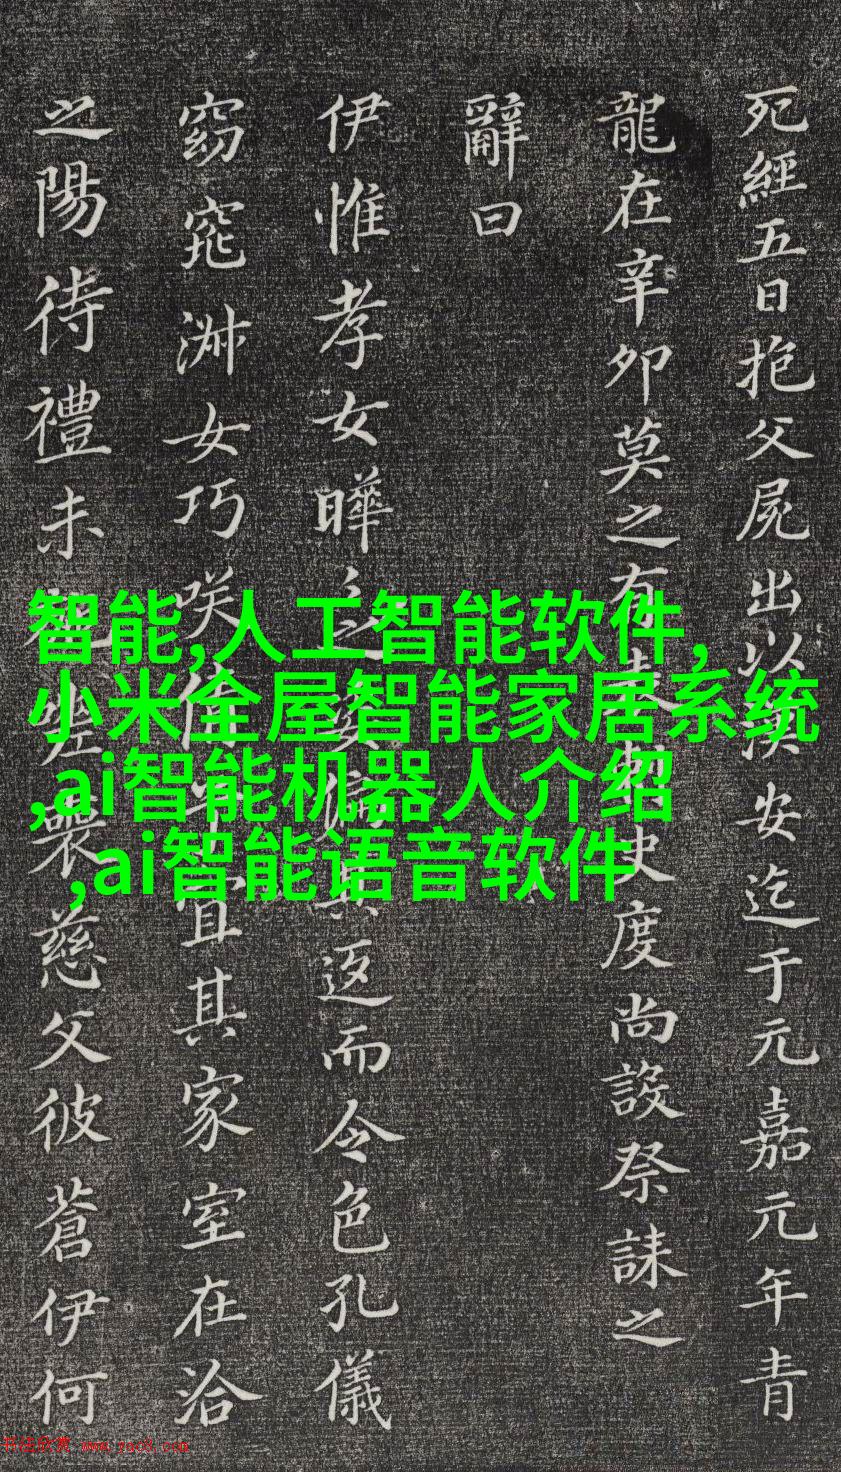 死經五日抱父屍出以漢安迄于元嘉元年青
龍在辛卯莫之有表史度尚設祭誄之
辭曰
伊惟孝女曄之姿偏其返而令色孔儀
窈窕淑女巧咲倩兮宜其家室在洽
之陽待禮未嗟喪慈父彼蒼伊何
智能,人工智能软件,
小米全屋智能家居系统
,ai智能机器人介绍
,ai智能语音软件
书法欣赏 www.yac8.com